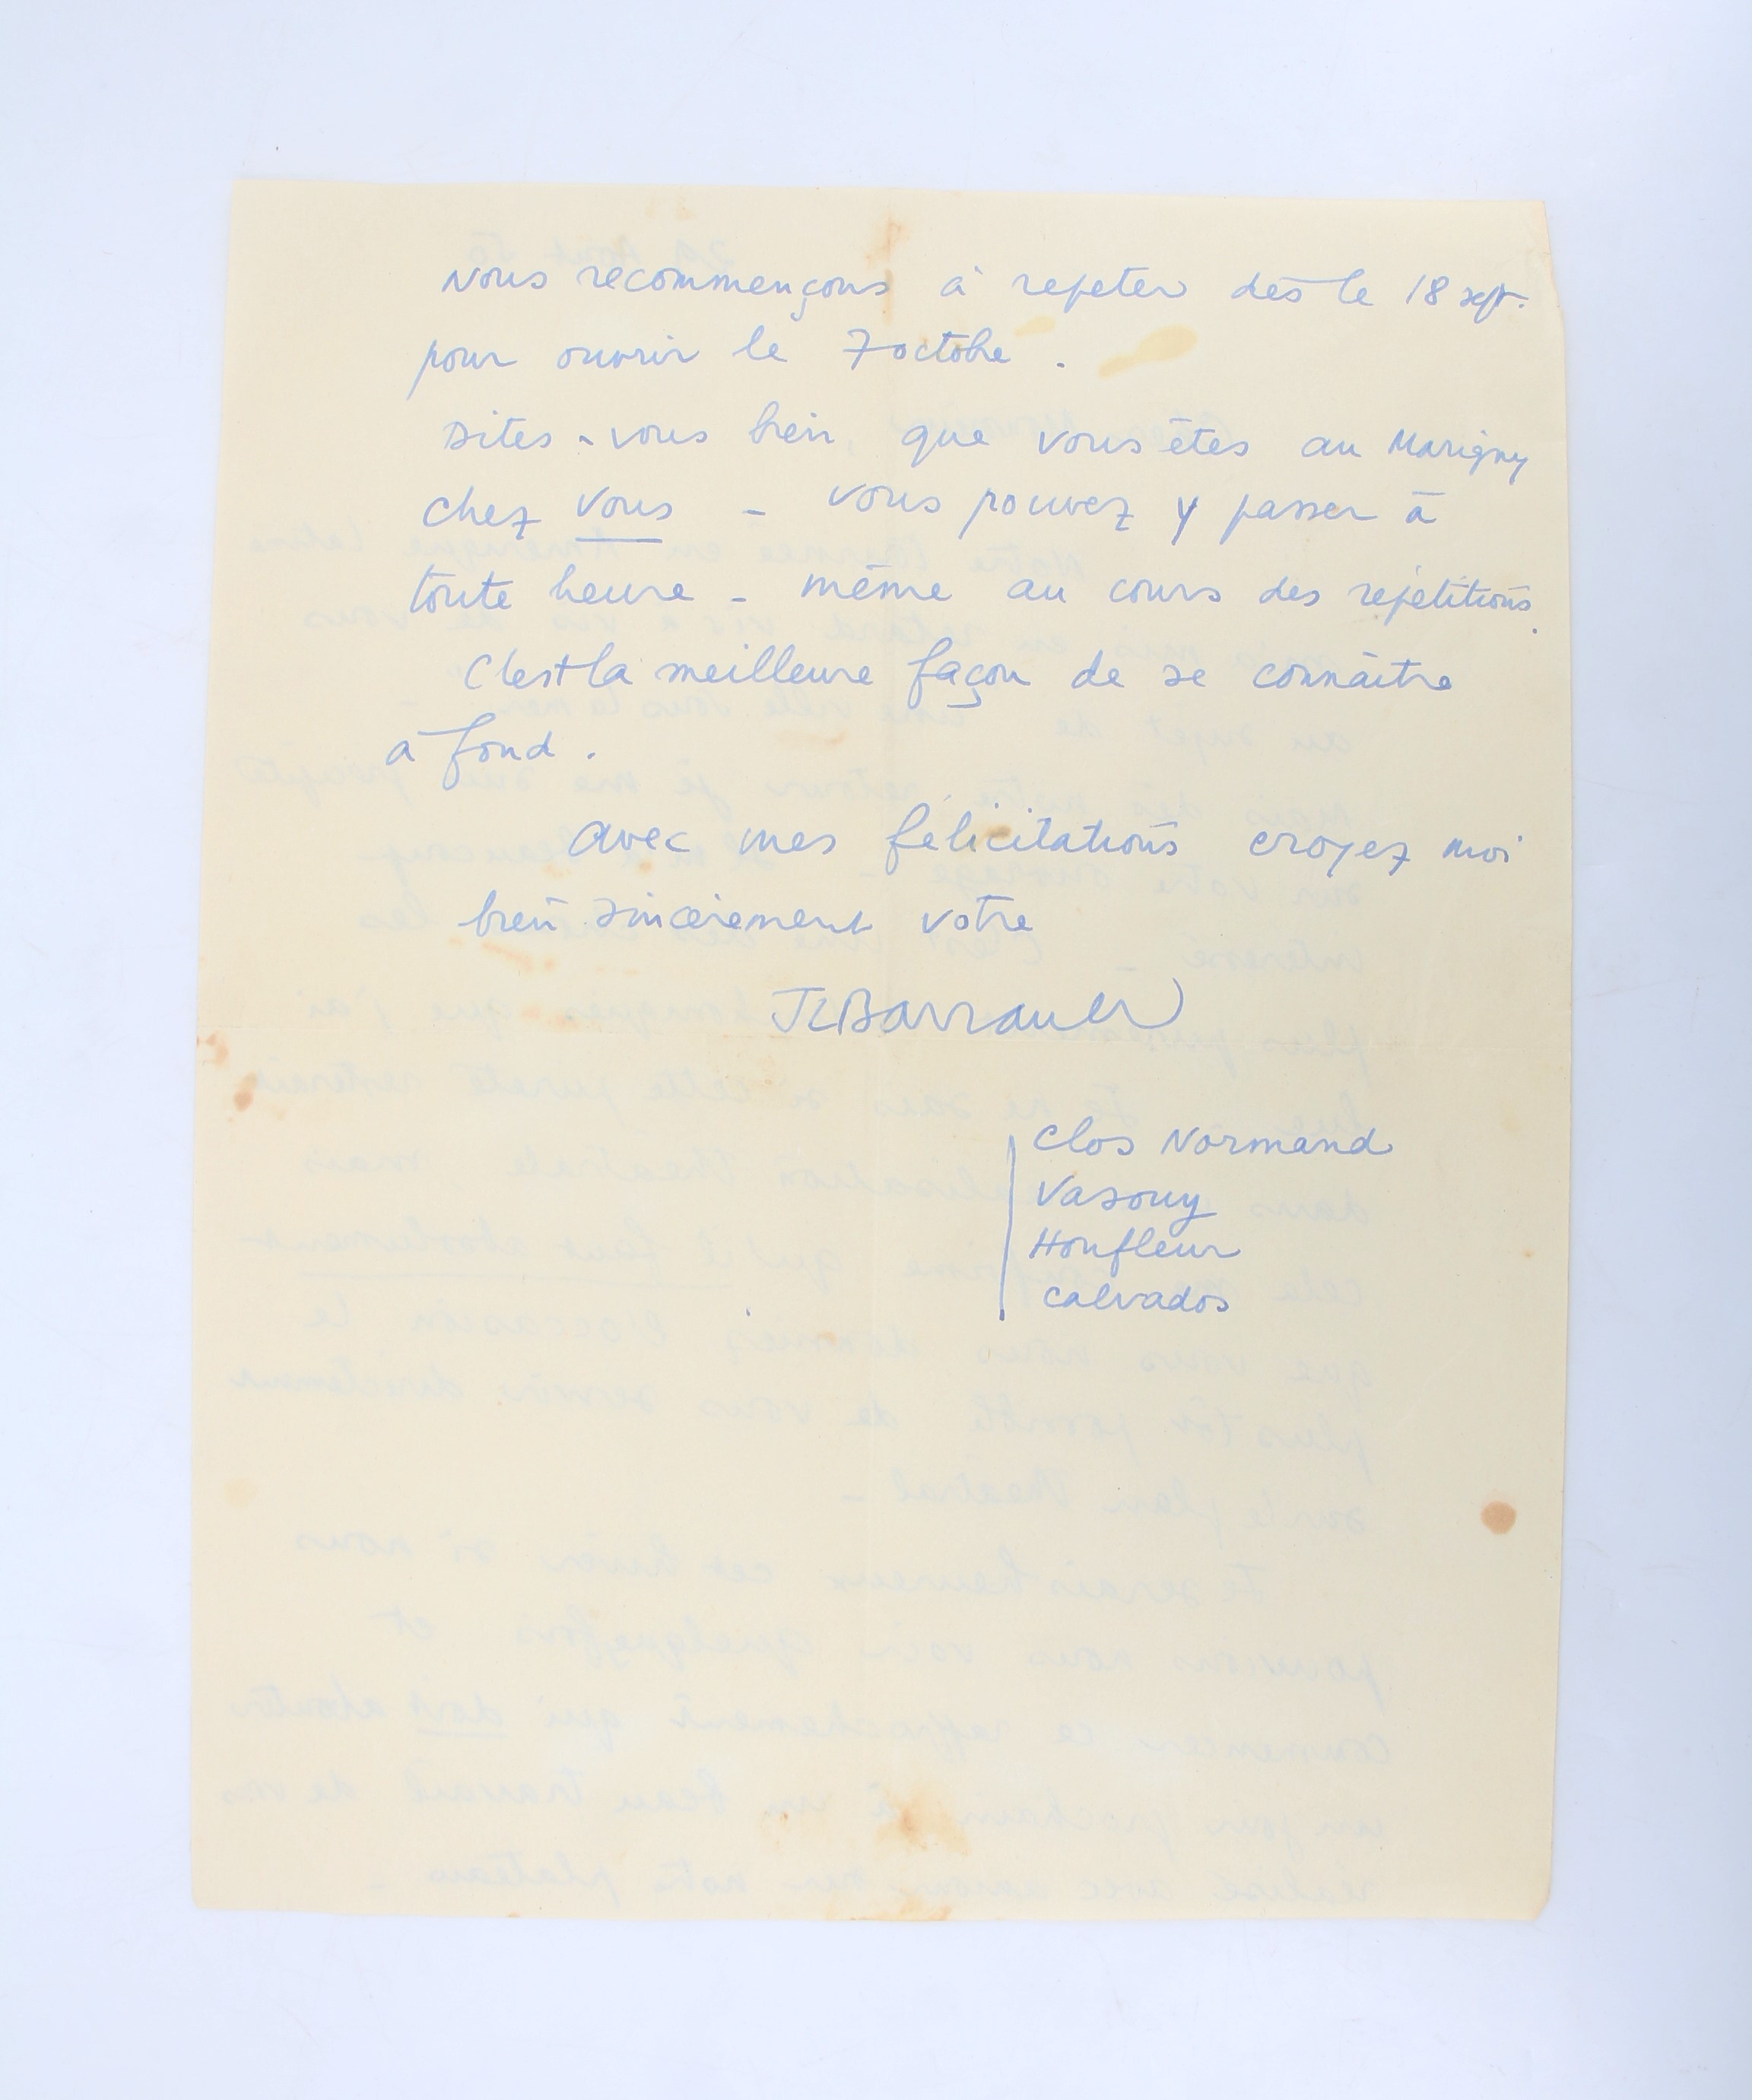 Nous recommençons à repeter dès le 18 sept.
pour ouvrir le 7 octobre.
Dites-vous bien, que vous êtes au Marigny
chez vous - vous pouvez y passer à
toute heure - même au cours des répétitions.
C'est la meilleure façon de se connaître
à fond.
Avec mes félicitations croyez moi
bien sincèrement votre
JLBarrault
Clos Normand
Vasouy
Honfleur
Calvados